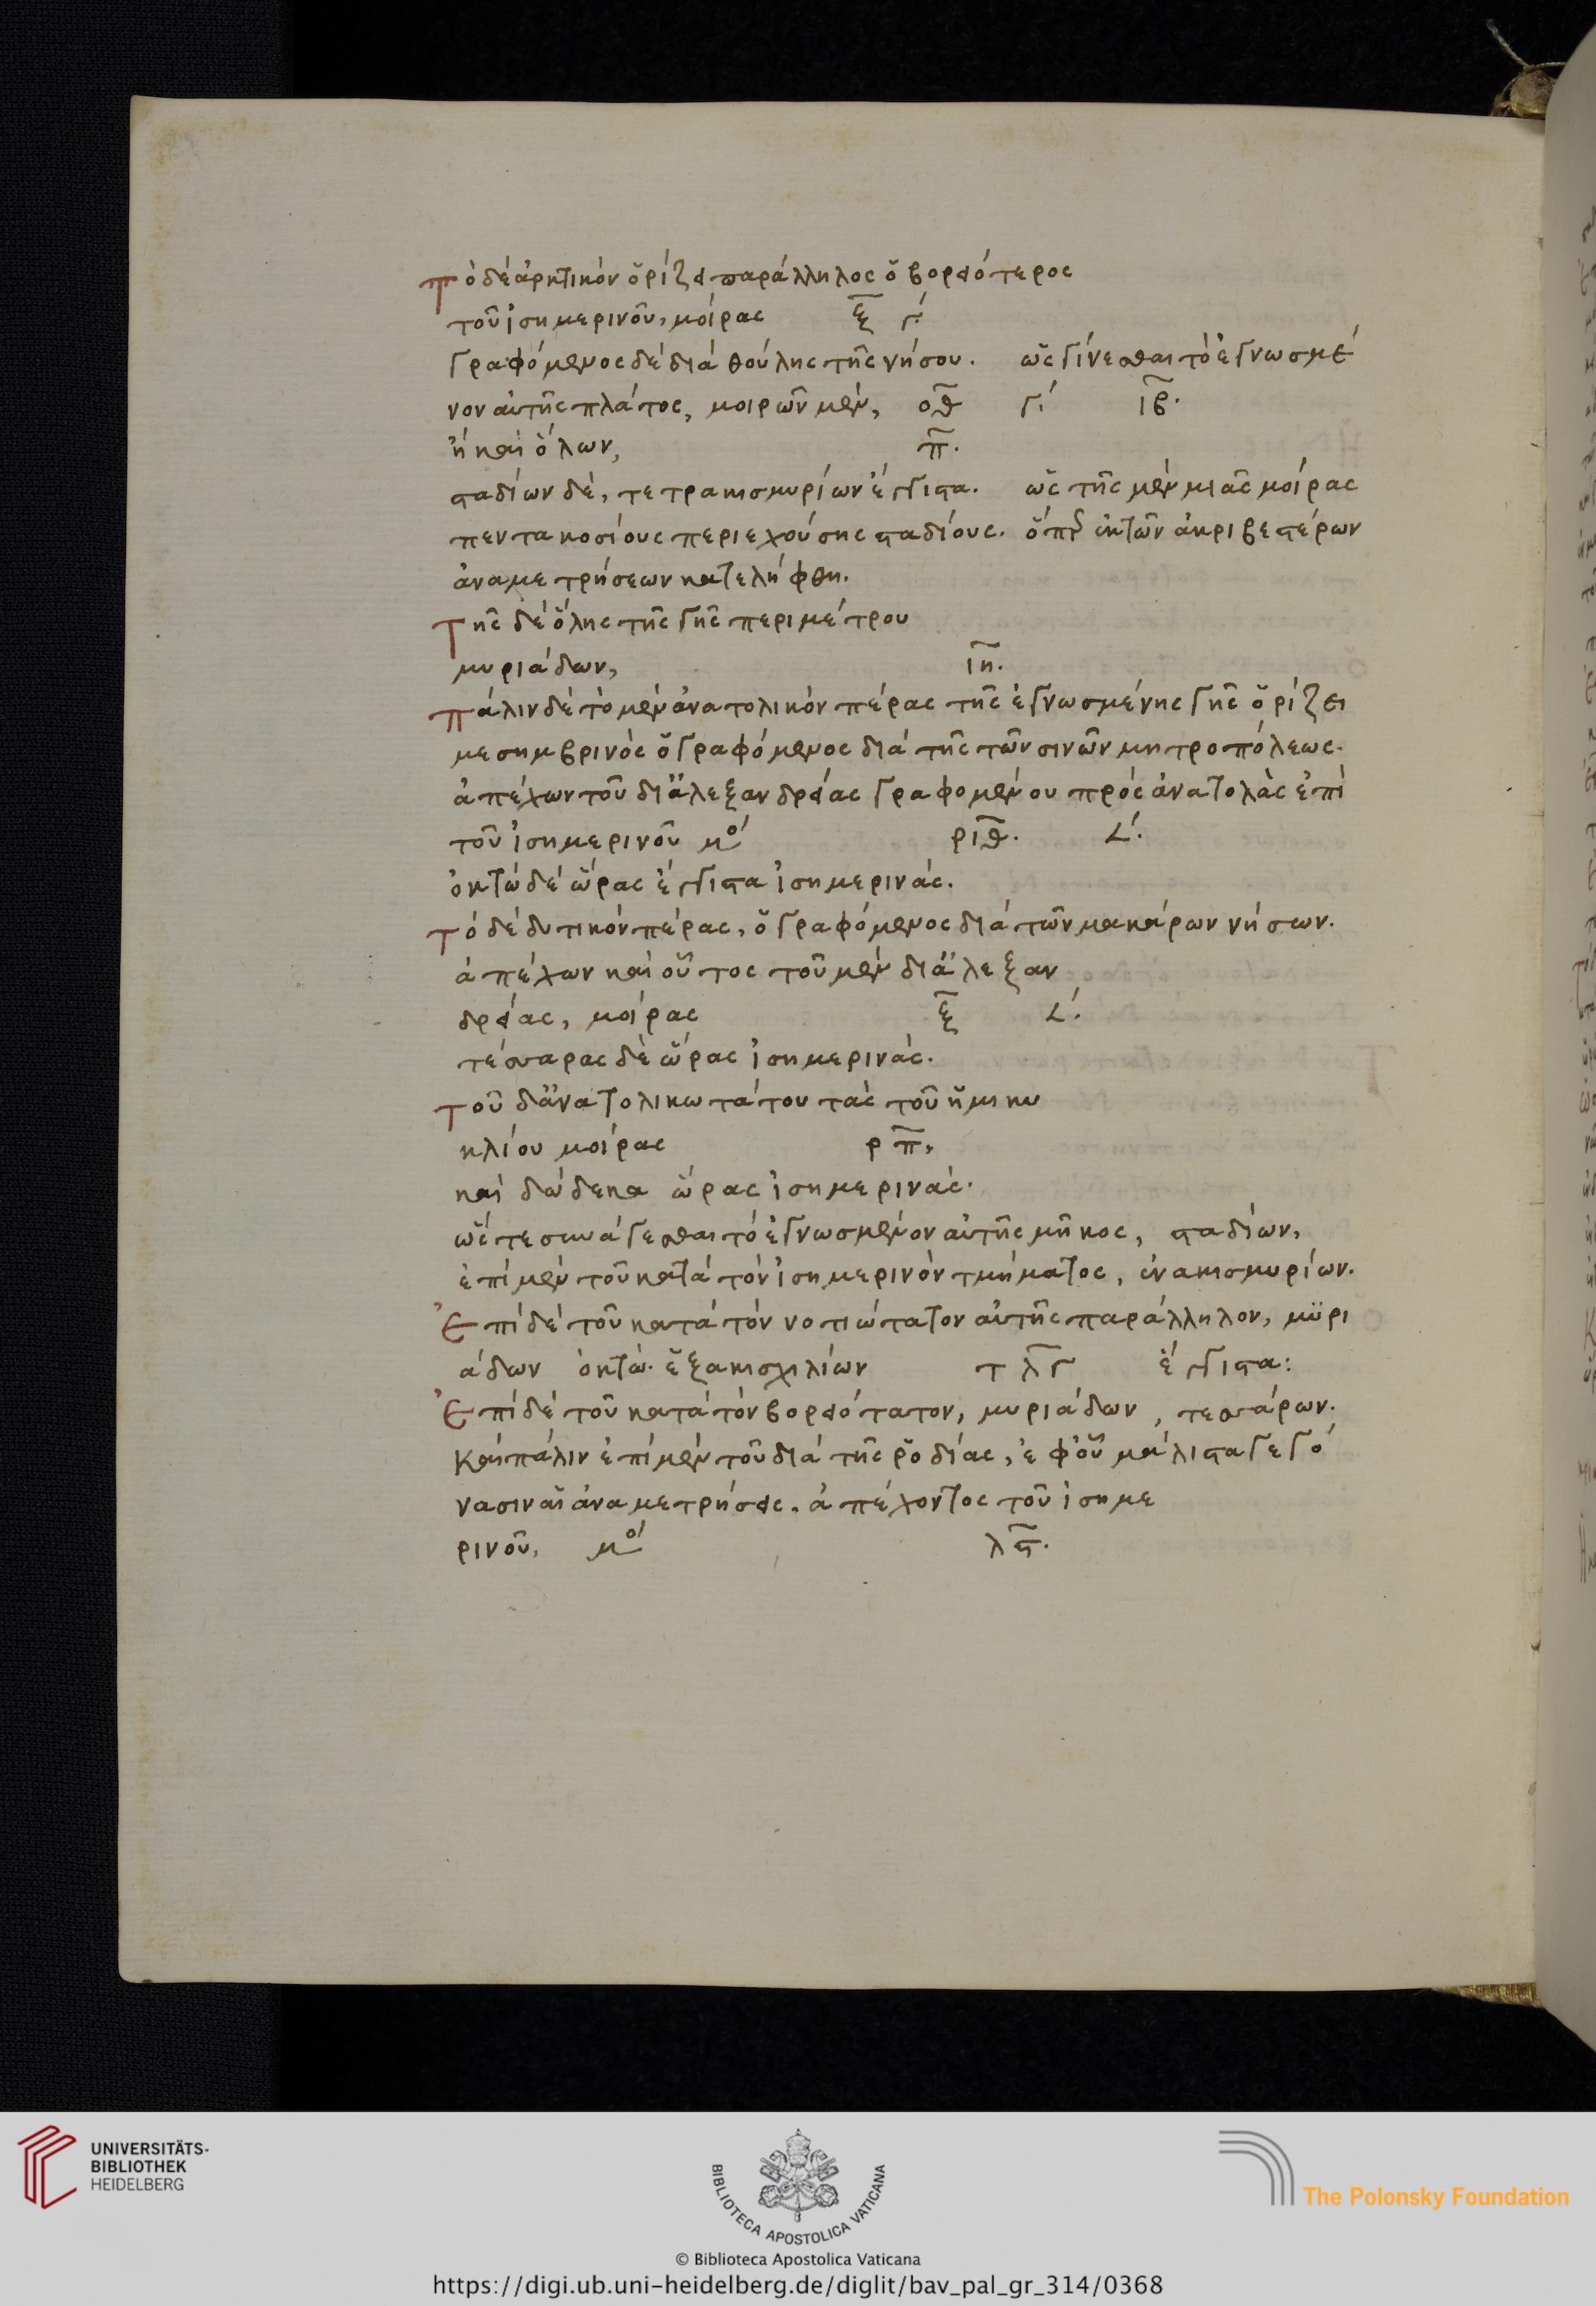 Τὸ δὲ ἀρκτικὸν ὁρίζει παράλληλος ὁ βορειότερος
τοῦ ἰσημερινοῦ, μοίρας ξ̅ γ´
γραφόμενος δὲ διὰ θούλης τῆς νήσου. ὡς γίνεσθαι τὸ ἐγνωσμέ
νον αὐτῆς πλάτος, μοιρῶν μὲν, οθ̅ γ´ ιβ̅.
ἢ καὶ ὅλων, π̅.
σταδίων δὲ, τετρακισμυρίων ἔγγιστα. ὡς τῆς μὲν μιᾶς μοίρας
πεντακοσίους περιεχούσης σταδίους. ὅπερ ἐκ τῶν ἀκριβεστέρων
ἀναμετρήσεων κατελήφθη.
Τῆς δὲ ὅλης τῆς γῆς περιμέτρου
μυριάδων, ιη̅.
Πάλιν δὲ τὸ μὲν ἀνατολικὸν πέρας τῆς ἐγνωσμένης γῆς ὁρίζει
μεσημβρινὸς ὁ γραφόμενος διὰ τῆς τῶν σινῶν μητροπόλεως.
ἀπέχων τοῦ δι ἀλεξανδρείας γραφομένου πρὸς ἀνατολὰς ἐπὶ
τοῦ ἰσημερινοῦ μο´ ριθ̅. ∠´.
ὀκτὼ δὲ ὥρας ἔγγιστα ἰσημερινάς.
Τὸ δὲ δυτικὸν πέρας, ὁ γραφόμενος διὰ τῶν μακάρων νήσων.
ἀπέχων καὶ οὗτος τοῦ μὲν δι ἀλεξαν
δρείας, μοίρας ξ̅ ∠´.
τέσσαρας δὲ ὥρας ἰσημερινάς.
Τοῦ δ ἀνατολικωτάτου τὰς τοῦ ἡμικυ
κλίου μοίρας ρπ̅,
καὶ δώδεκα ὥρας ἰσημερινάς.
ὥστε συνάγεσθαι τὸ ἐγνωσμένον αὐτῆς μῆκος, σταδίων,
ἐπὶ μὲν τοῦ κατὰ τὸν ἰσημερινὸν τμήματος, ἐνακισμυρίων.
Ἐπὶ δὲ τοῦ κατὰ τὸν νοτιώτατον αὐτῆς παράλληλον, μϋρι
άδων ὀκτὼ. ἑξακισχιλίων τλ̅γ ἔγγιστα:
Ἐπὶ δὲ τοῦ κατὰ τὸν βορειότατον, μυριάδων, τεσσάρων.
Καὶ πάλιν ἐπὶ μὲν τοῦ διὰ τῆς ῥοδίας, ἐφ οὗ μάλιστα γεγό
νασιν αἱ ἀναμετρήσεις. ἀπέχοντος τοῦ ἰσημε
ρινοῦ, μο´ λϛ̅.
UNIVERSITÄTS-
BIBLIOTHEK
HEIDELBERG
BIBLIOTECA APOSTOLICA VATICANA
The Polonsky Foundation
© Biblioteca Apostolica Vaticana
https://digi.ub.uni-heidelberg.de/diglit/bav_pal_gr_314/0368